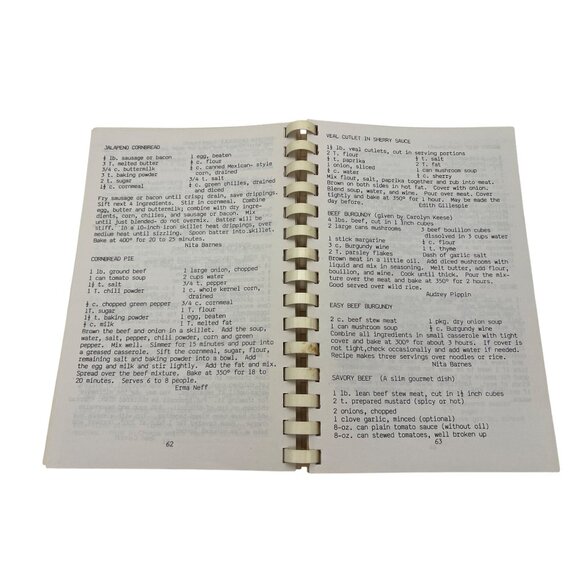 JALAPENO CORNBREAD
½ lb. sausage or bacon 1 egg, beaten
3 T. melted butter ½ c. flour
3/4 c. buttermilk ½ c. canned Mexican-style
3 t. baking powder corn, drained
2 t. sugar 3/4 t. salt
1½ c. cornmeal ½ c. green chilies, drained
and diced
Fry sausage or bacon until crisp; drain, save drippings.
Sift next 4 ingredients. Stir in cornmeal. Combine
egg, butter and buttermilk; combine with dry ingre-
dients, corn, chilies, and sausage or bacon. Mix
until just blended- do not overmix. Batter will be
stiff. In a 10-inch iron skillet heat drippings, over
medium heat until sizzling. Spoon batter into skillet.
Bake at 400° for 20 to 25 minutes.
Nita Barnes
CORNBREAD PIE
1 lb. ground beef 1 large onion, chopped
1 can tomato soup 2 cups water
1½ t. salt 3/4 t. pepper
1 T. chili powder 1 c. whole kernel corn,
drained
½ c. chopped green pepper 3/4 c. cornmeal
1T. sugar 1 T. flour
1½ t. baking powder 1 egg, beaten
½ c. milk 1 T. melted fat
Brown the beef and onion in a skillet. Add the soup,
water, salt, pepper, chili powder, corn and green
pepper. Mix well. Simmer for 15 minutes and pour into
a greased casserole. Sift the cornmeal, sugar, flour,
remaining salt and baking powder into a bowl. Add
the egg and milk and stir lightly. Add the fat and mix.
Spread over the beef mixture. Bake at 350° for 18 to
20 minutes. Serves 6 to 8 people.
Erma Neff
62
VEAL CUTLET IN SHERRY SAUCE
1½ lb. veal cutlets, cut in serving portions
2 T. flour ½ t. salt
½ t. paprika 2 T. fat
1 onion, sliced 1 can mushroom soup
½ c. water ½ c. sherry
Mix flour, salt, paprika together and rub into meat.
Brown on both sides in hot fat. Cover with onion.
Blend soup, water, and wine. Pour over meat. Cover
tightly and bake at 350° for 1 hour. May be made the
day before.
Edith Gillespie
BEEF BURGUNDY (given by Carolyn Keese)
4 lbs. beef, cut in 1 inch cubes
2 large cans mushrooms 3 beef bouillon cubes
dissolved in 3 cups water
1 stick margarine ½ c. flour
3 c. Burgundy wine 1 t. thyme
2 T. parsley flakes Dash of garlic salt
Brown meat in a little oil. Add diced mushrooms with
liquid and mix in seasoning. Melt butter, add flour,
bouillon, and wine. Cook until thick. Pour the mix-
ture over the meat and bake at 350° for 2 hours.
Good served over wild rice.
Audrey Pippin
EASY BEEF BURGUNDY
2 c. beef stew meat ½ pkg. dry onion soup
1 can mushroom soup ½ c. Burgundy wine
Combine all ingredients in small casserole with tight
cover and bake at 300° for about 3 hours. If cover is
not tight,check occasionally and add water if needed.
Recipe makes three servings over noodles or rice.
Nita Barnes
SAVORY BEEF (A slim gourmet dish)
1 lb. lean beef stew meat, cut in 1½ inch cubes
2 t. prepared mustard (spicy or hot)
2 onions, chopped
1 clove garlic, minced (optional)
8-oz. can plain tomato sauce (without oil)
8-oz. can stewed tomatoes, well broken up
63